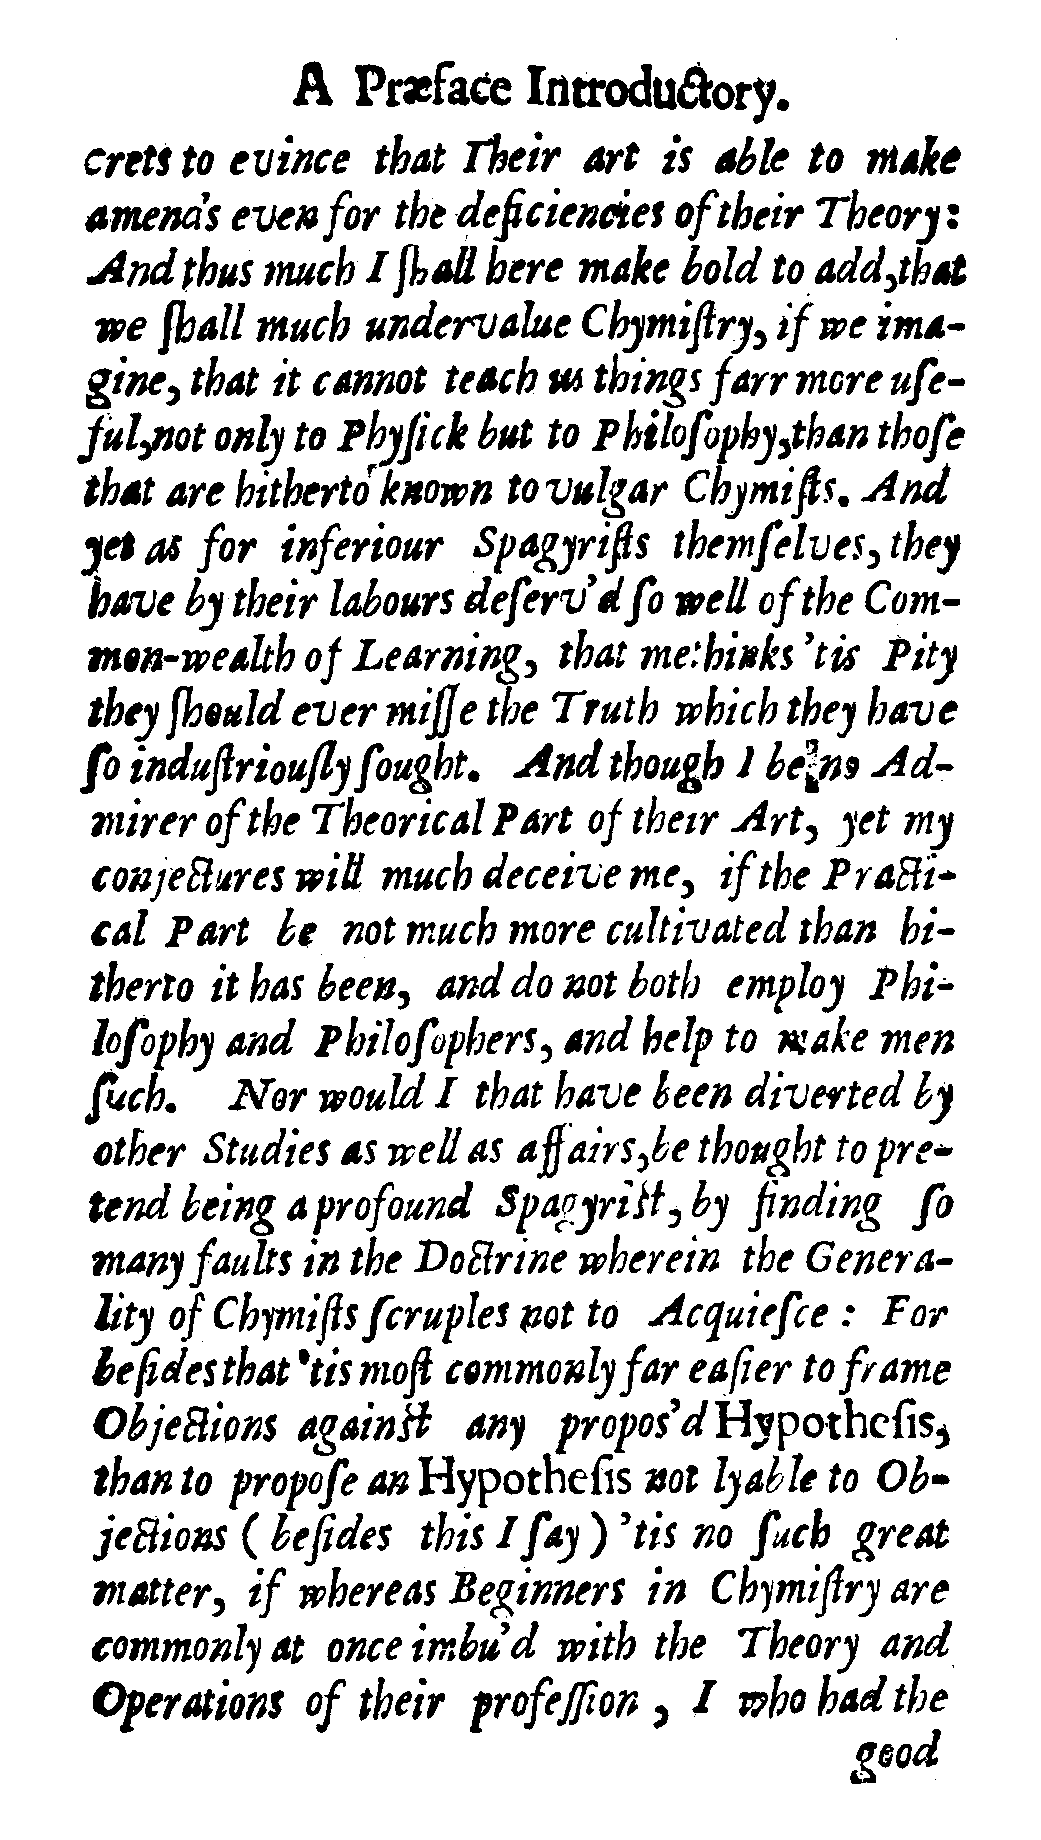 A Præface Introductory.
crets to evince that Their art is able to make
amends even for the deficiencies of their Theory:
And thus much I ſhall here make bold to add, that
we ſhall much undervalue Chymiſtry, if we ima-
gine, that it cannot teach us things farr more uſe-
ful, not only to Phyſick but to Philoſophy, than thoſe
that are hitherto known to vulgar Chymiſts. And
yet as for inferiour Spagyriſts themſelves, they
have by their labours deſerv'd ſo well of the Com-
mon-wealth of Learning, that methinks 'tis Pity
they ſhould ever miſſe the Truth which they have
ſo induſtriouſly ſought. And though I be no Ad-
mirer of the Theorical Part of their Art, yet my
conjectures will much deceive me, if the Practi-
cal Part be not much more cultivated than hi-
therto it has been, and do not both employ Phi-
loſophy and Philoſophers, and help to make men
ſuch. Nor would I that have been diverted by
other Studies as well as affairs, be thought to pre-
tend being a profound Spagyriſt, by finding ſo
many faults in the Doctrine wherein the Genera-
lity of Chymiſts ſcruples not to Acquieſce : For
beſides that 'tis moſt commonly far eaſier to frame
Objections againſt any propos'd Hypotheſis,
than to propoſe an Hypotheſis not lyable to Ob-
jections ( beſides this I ſay ) 'tis no ſuch great
matter, if whereas Beginners in Chymiſtry are
commonly at once imbu'd with the Theory and
Operations of their profeſſion , I who had the
good